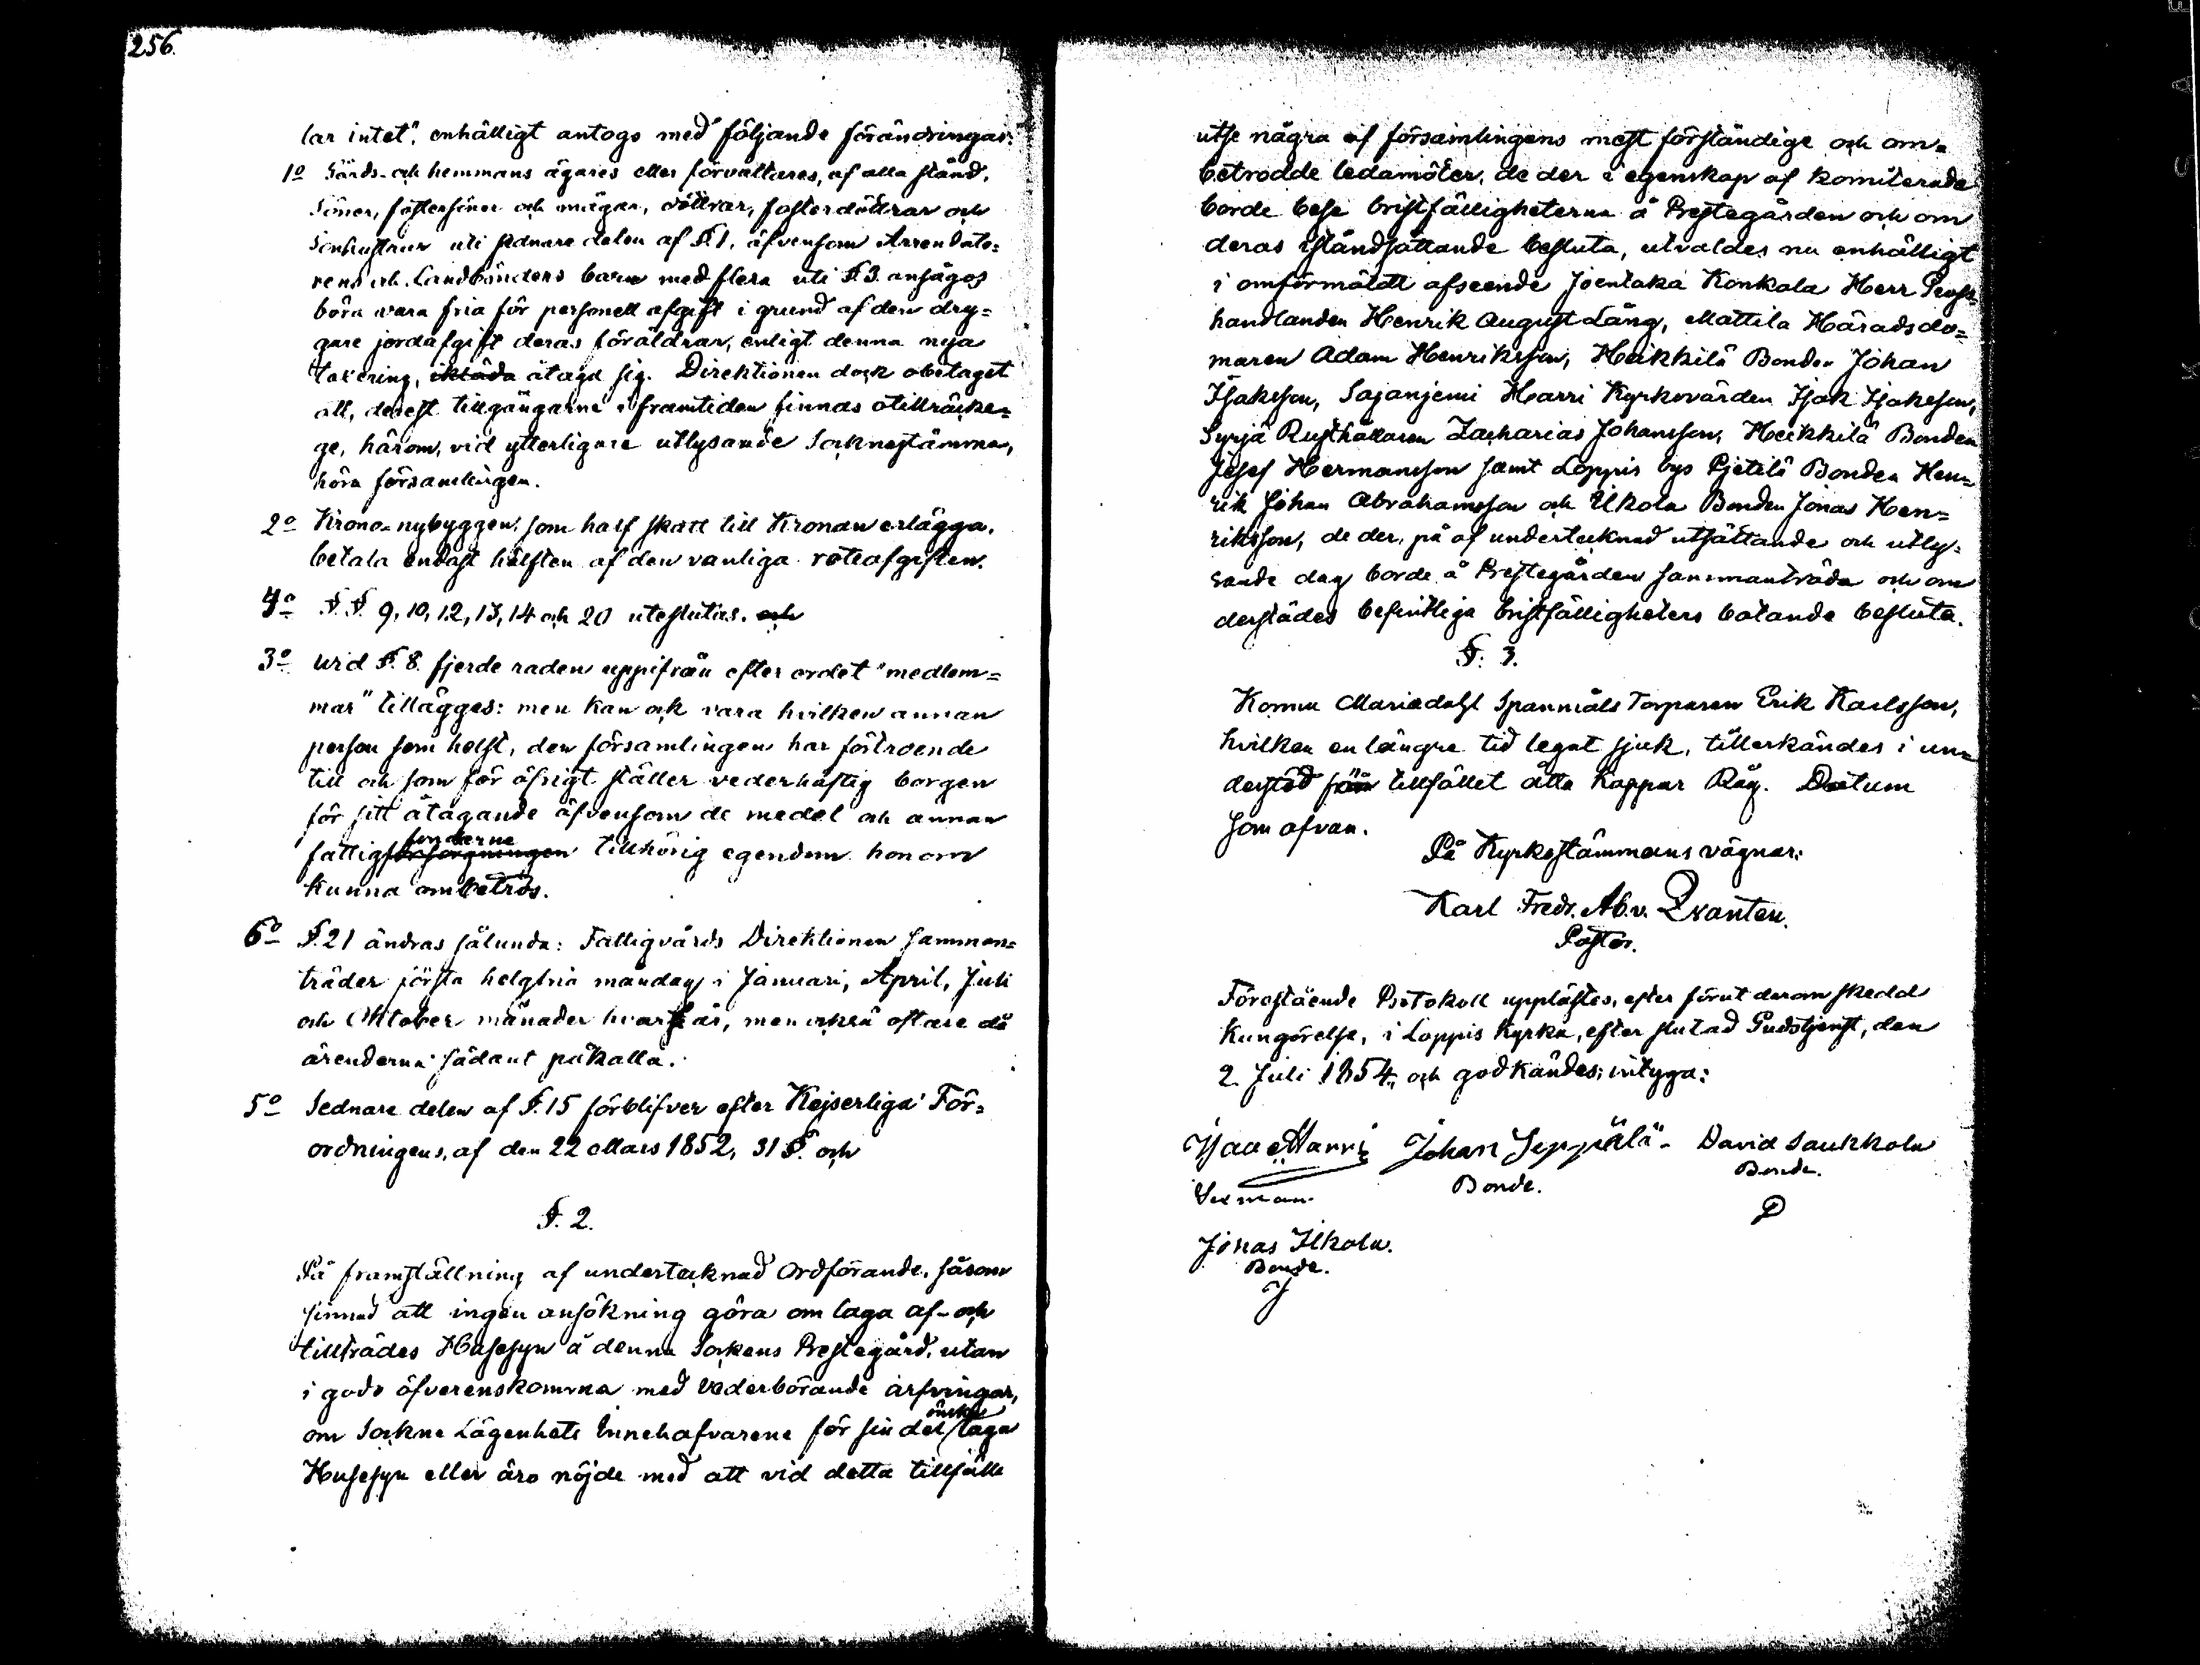 256.
lar intet", enhälligt antogs med följande förändringar:
1o Gårds- och hemmans ägares eller förvaltares, af alla stånd,
Söner, fostersöner och mågar, döttrar, fosterdöttrar och
Sonhustrur uti sednare delen af §.1, äfvensom Arrendato=
rens och Landbönders barn med flera uti §.3. ansågos
böra vara fria för personell afgift i grund af den dry=
gare jordafgift deras föräldrar, enligt denna nya
taxering, iklåda åtaga sig. Direktionen dock obetaget
att, derest tillgångarne i framtiden finnas otillräcke=
ge, härom, vid ytterligare utlysande Socknestämma,
höra församlingen.
2o Krono-nybyggen, som half skatt till Kronan erlägga,
betala endast hälften af den vanliga roteafgiften.
4o §.§. 9, 10, 12, 13, 14 och 20 uteslutas. och
3o Wid §. 8. fjerde raden uppifrån efter ordet "medlem=
mar" tillägges: men kan ock vara hvilken annan
person som helst, den församlingen har förtroende
till och som för öfrigt ställer vederhäftig borgen
för sitt åtagande äfvensom de medel och annan
fonderne
fattigförsörgningen tillhörig egendom honom
kunna ombetros.
6o §.21 ändras sålunda: Fattigvårds Direktionen samman=
träder första helgfria måndag i Januari, April, Juli
och Oktober månader hvart år, men också oftare då
ärenderna sådant påkalla.
5o Sednare delen af §.15 förblifver efter Kejserliga För=
ordningens, af den 22 Mars 1852, 31 §. och
§. 2.
På framställning af undertecknad Ordförande, såsom
sinnad att ingen ansökning göra om laga af- och
tillträdes Husesyn å denna Sockens Prestegård, utan
i godo öfverenskomma med Vederbörande arfvingar,
önska
om Sockne Lägenhets Innehafvarene för sin del laga
Husesyn eller äro nöjde med att vid detta tillfälle
utse några af församlingens mest förståndige och om=
betrodde ledamöter, de der i egenskap af komiterade
borde bese bristfälligheterna å Prestegården och om
deras iståndsättande besluta, utvaldes nu enhälligt
i omförmäldt afseende Joentaka Konkala Herr Pross=
handlanden Henrik August Lång, Mattila Häradsdo=
maren Adam Henriksson, Heikkilä Bonden Johan
Isaksson, Sajaniemi Harri Kyrkovärden Isak Isaksson,
Syrjä Rusthållaren Zacharias Johansson, Heikkilä Bonden
Josef Hermansson samt Loppis bys Pietilä Bonden Hen=
rik Johan Abrahamsson och Ilkola Bonden Jonas Hen=
riksson, de der, på af undertecknad utsättande och utly=
sande dag borde å Prestegården sammanträda och om
derstädes befintliga bristfälligheters botande besluta.
§. 3.
Komm Mariedahl Spannmåls Torparen Erik Karlsson,
hvilken en längre tid legat sjuk, tillerkändes i un=
derstöd för tillfället åtta Kappar Råg. Datum
som ofvan.
På Kyrkostämmans vägnar:
Karl Fredr. Ab. v. Qvanten.
Pastor.
Förestående Protokoll upplästes, efter förut derom skedd
Kungörelse, i Loppis Kyrka, efter slutad Gudstjenst, den
2 Juli 1854, och godkändes; intyga:
Isac Harri Johan Seppälä. David Saukkola
Sexman. Bonde. Bonde.
D
Jonas Ilkola.
Bonde.
J